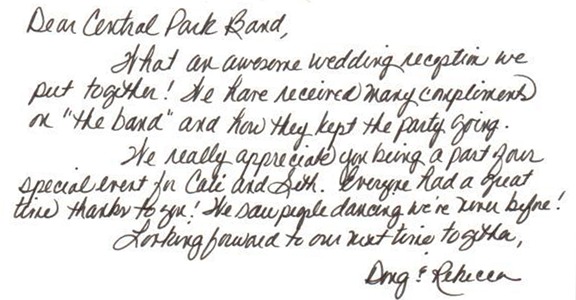 Dear Central Park Band,
What an awesome wedding reception we
put together! We have received many compliments
on "the band" and how they kept the party going.
We really appreciate you being a part of our
special event for Cali and Seth. Everyone had a great
time thanks to you! We saw people dancing we've never before!
Looking forward to our next time together,
Doug & Rebecca